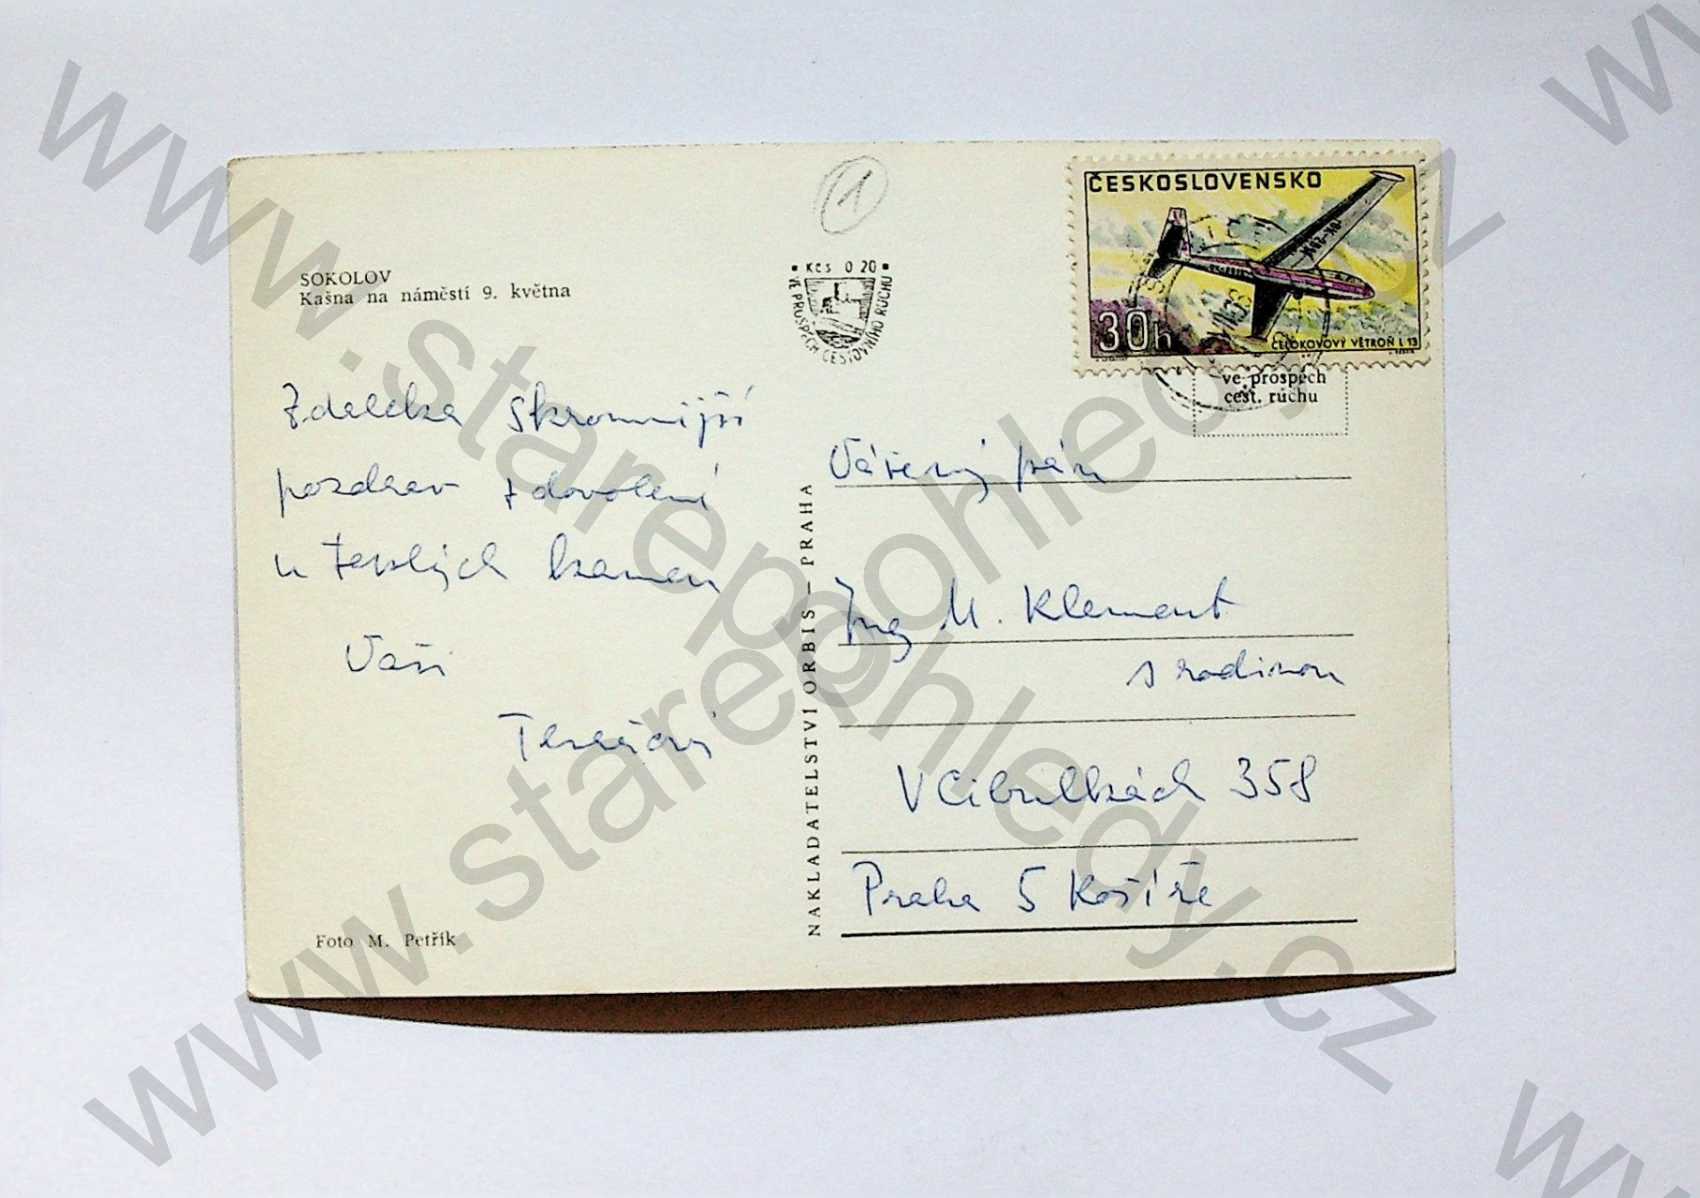 SOKOLOV
Kašna na náměstí 9. května
Zdaleka skromnější
pozdrav z dovolené
u teplých kamen
Vaši
Foto M. Petřík
1
Kčs 0 20
VE PROSPĚCH CESTOVNÍHO RUCHU
NAKLADATELSTVÍ ORBIS – PRAHA
ČESKOSLOVENSKO
OK-
30h
CELOKOVOVÝ VĚTROŇ L 13
ve prospěch
cest. rúchu
Vážený pán
Ing M. Klement
s rodinou
V Cibulkách 358
Praha 5 Košíře
www.starepohledy.cz
www.starepohledy.cz